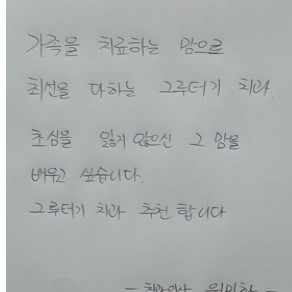 가족을 치료하는 맘으로
최선을 다하는 그루터기 치과.
초심을 잃기 않으신 그 맘을
배우고 싶습니다.
그루터기 치과 추천 합니다